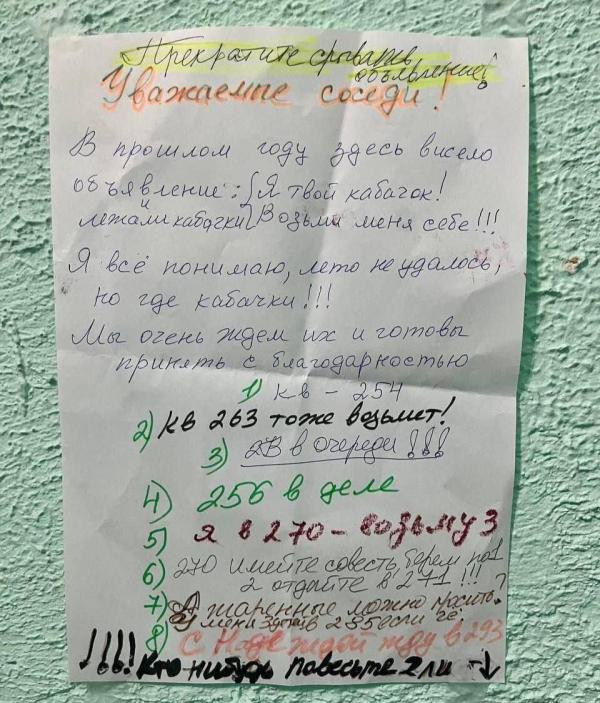 Прекратите срывать
объявление!
Уважаемые соседи!
В прошлом году здесь висело
объявление: Я твой кабачок!
и лежали кабачки Возьми меня себе!!!
Я всё понимаю, лето не удалось,
но где кабачки!!!
Мы очень ждем их и готовы
принять с благодарностью
1) кв - 254
2) кв 263 тоже возьмет!
3) 2В в очереди!!!
4) 256 в деле
5) я в 270 - возьму 3
6) 270 имейте совесть, берем по 1
2 отдайте в 271!!!
7) А жаренные можно просить?
У меня в 255 если че
8) С Надеждой жду в 293
!!!! Кто нибудь повесьте 2 ли